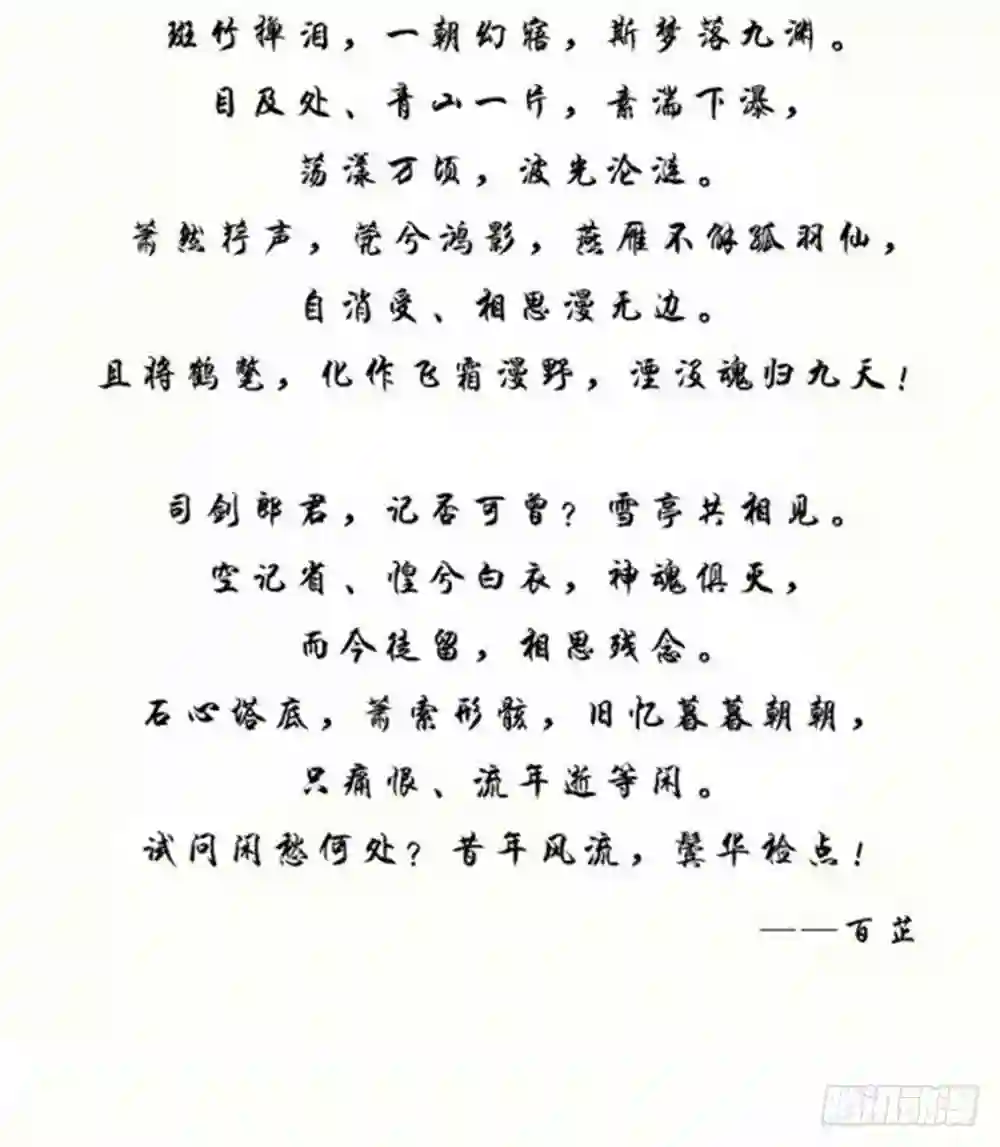 斑竹掸泪，一朝幻寤，斯梦落九渊。
目及处、青山一片，素湍下瀑，
荡漾万顷，波光沦涟。
萧然将声，茕兮鸿影，燕雁不解孤羽仙，
自消受、相思漫无边。
且将鹤氅，化作飞霜漫野，湮没魂归九天！
司剑郎君，记否可曾？雪亭共相见。
空记省、惶兮白衣，神魂俱灭，
而今徒留，相思残念。
石心塔底，萧索形骸，旧忆暮暮朝朝，
只痛恨、流年逝等闲。
试问闲愁何处？昔年风流，鬓华检点！
——百芷
腾讯动漫